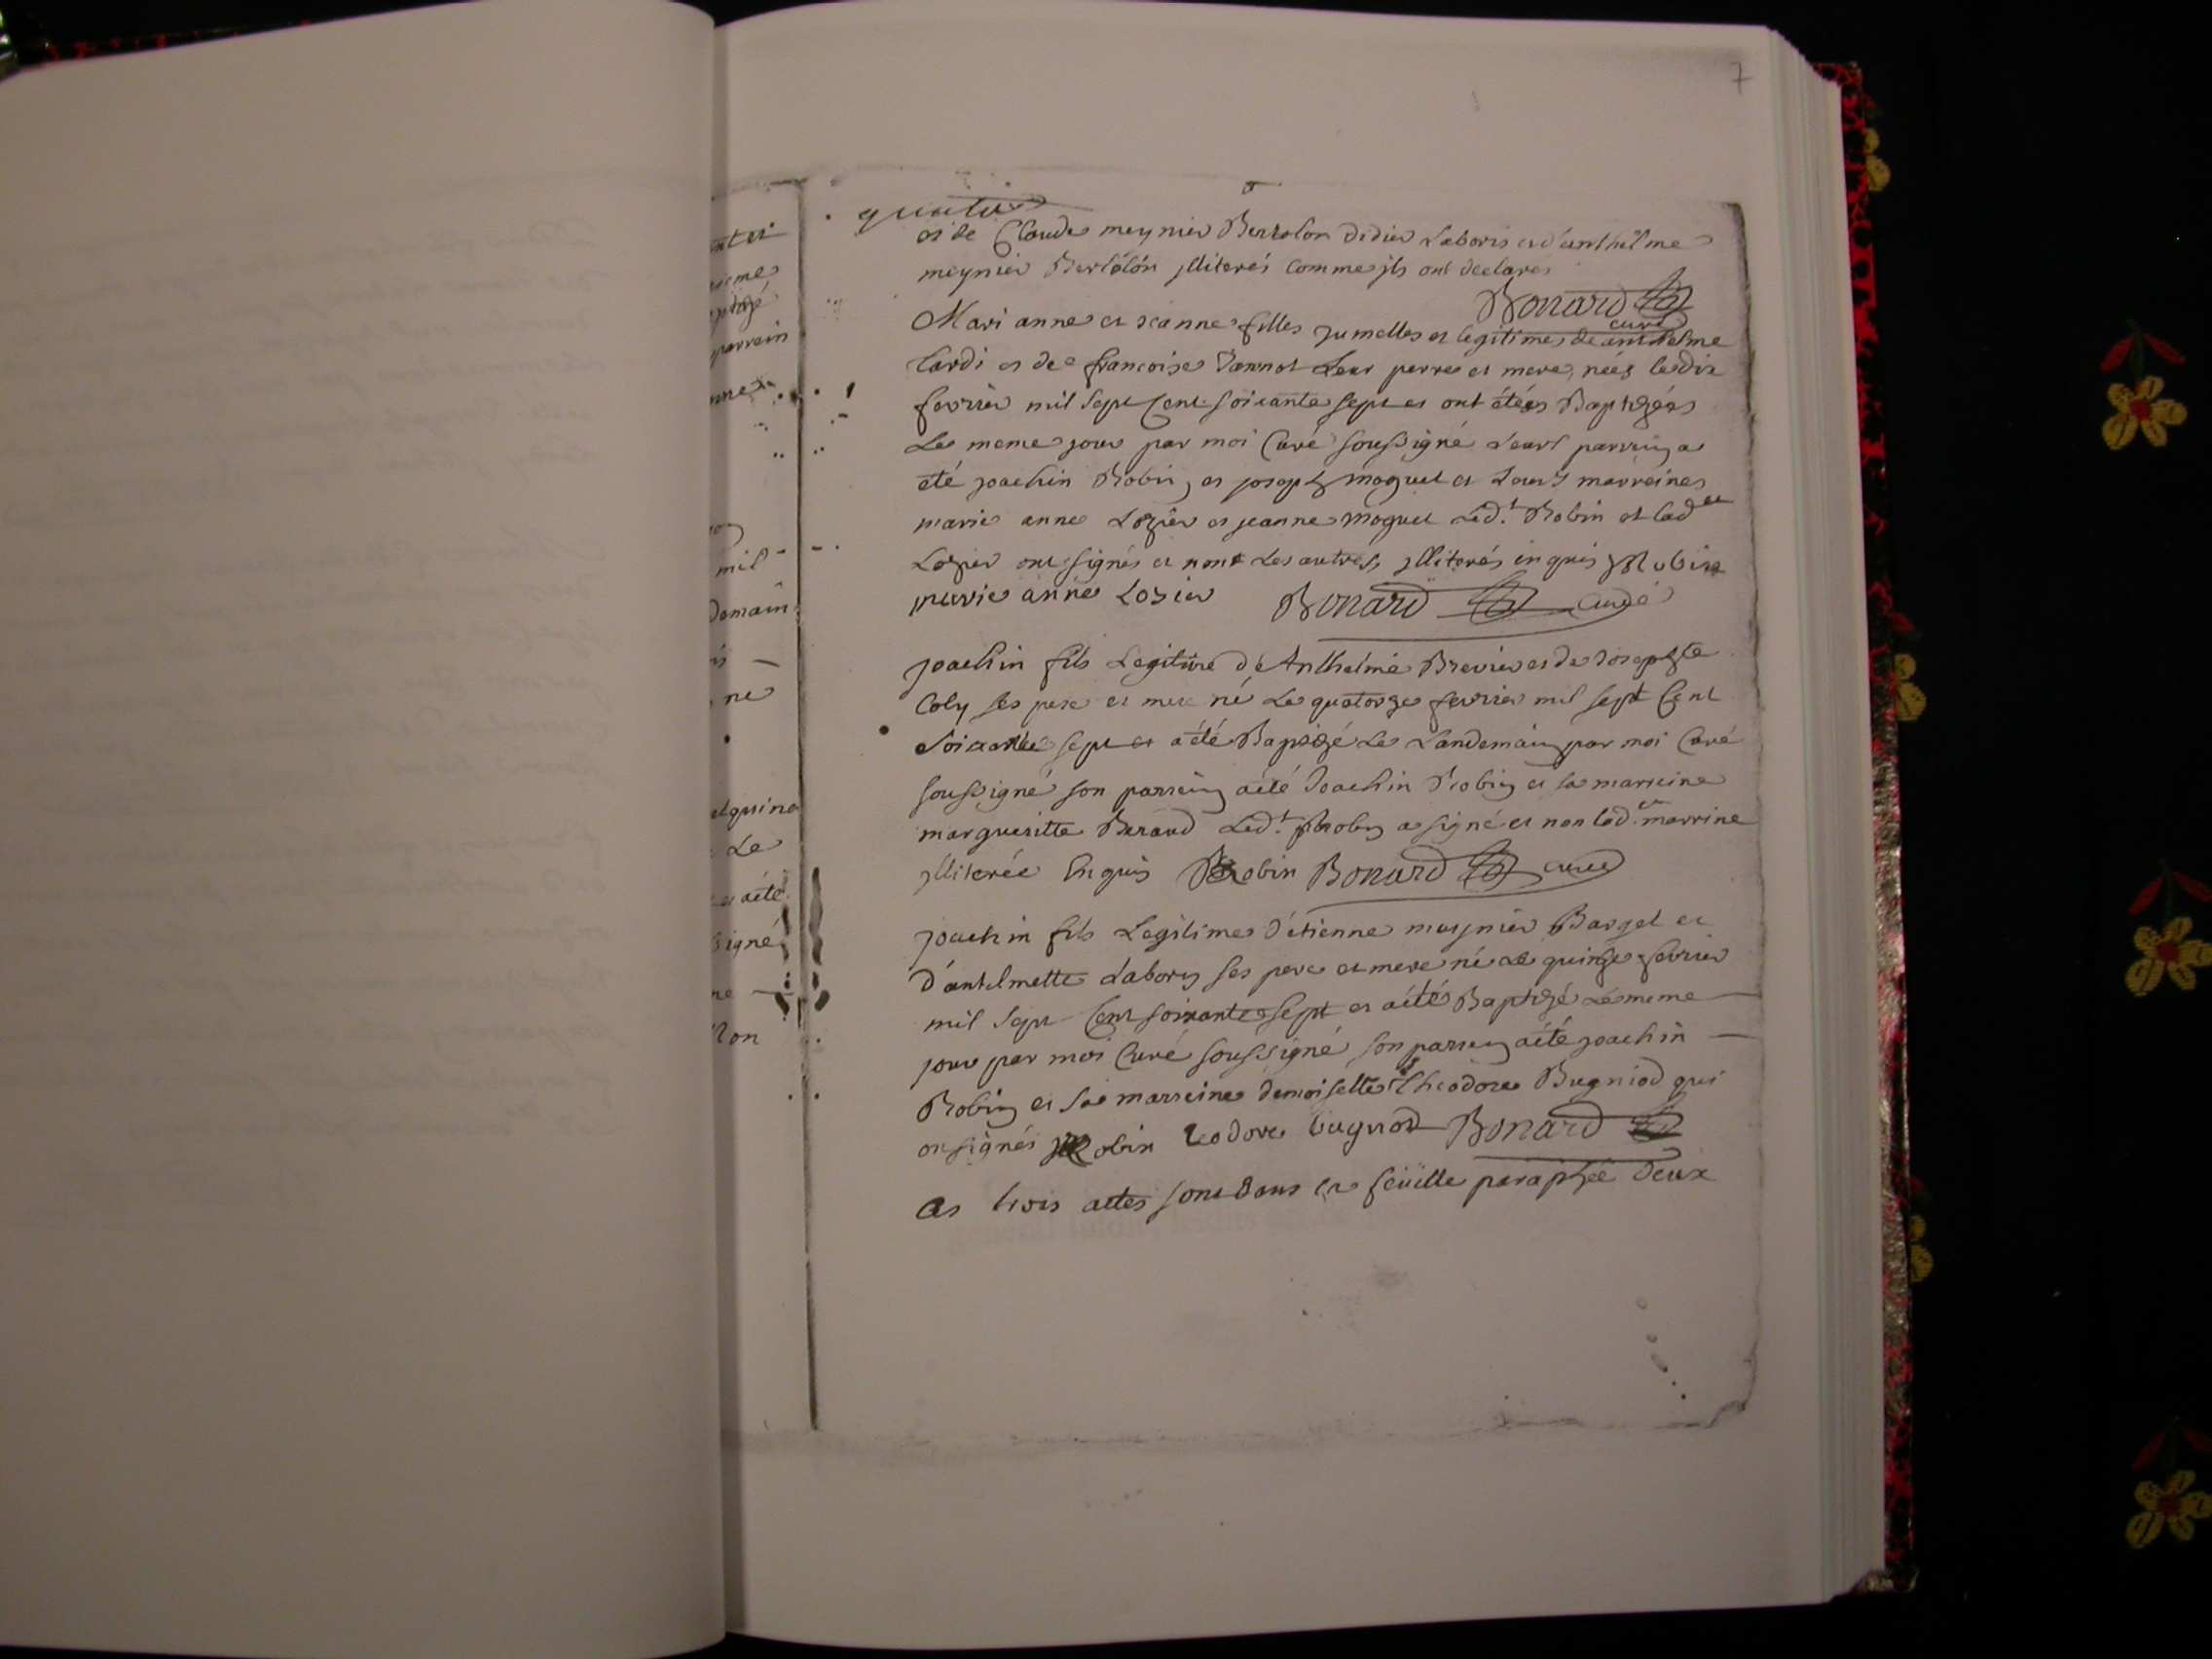 7
quatre
et de Claude meynier Bertolon didier Laboris et d'anthelme
meynier Bertolon jlliterés comme jls ont declarés
Bonard curé
Mari anne et jeanne filles jumelles et legitimes de anthelme
tardi et de francoise Jannot Leur perre et mere, nées le dix
fevrier mil sept cent soixante sept et ont étées Baptizées
Le meme jour par moi Curé soussigné Leurs parrin a
eté joachin Robin, et joseph moguet et Leurs marreines
marie anne Lozier et jeanne moguet Led.t Robin et lad.te
Lozier ont signés et non Les autres, jlliterés enquis J Robin
marie anne Lozier Bonard curé
joachin fils Legitime d'Anthelme Brevier et de Josephte
Coly ses pere et mere né Le quatorze fevrier mil sept Cent
soixante sept et a été Baptizé Le Landemain par moi Curé
soussigné son parrein a été Joachin Robin et sa marreine
margueritte Beraud Led.t Robin a signé et non lad.te marrine
jlliterée Enquis J Robin Bonard curé
joachin fils Legitime d'étienne meynier Barget et
d'antelmette Laboris ses pere et mere né Le quinze fevrier
mil sept Cent soixante sept et a été Baptizé Le meme
jour par moi Curé soussigné son parrein a été joachin
Robin et sa marreine demoiselle Theodore Bugniod qui
on signés J Robin teodore bugniod Bonard
Ces trois actes sont dans la feüille paraphée deux
parrein
mil
Demain
ne
Le
a été
signé